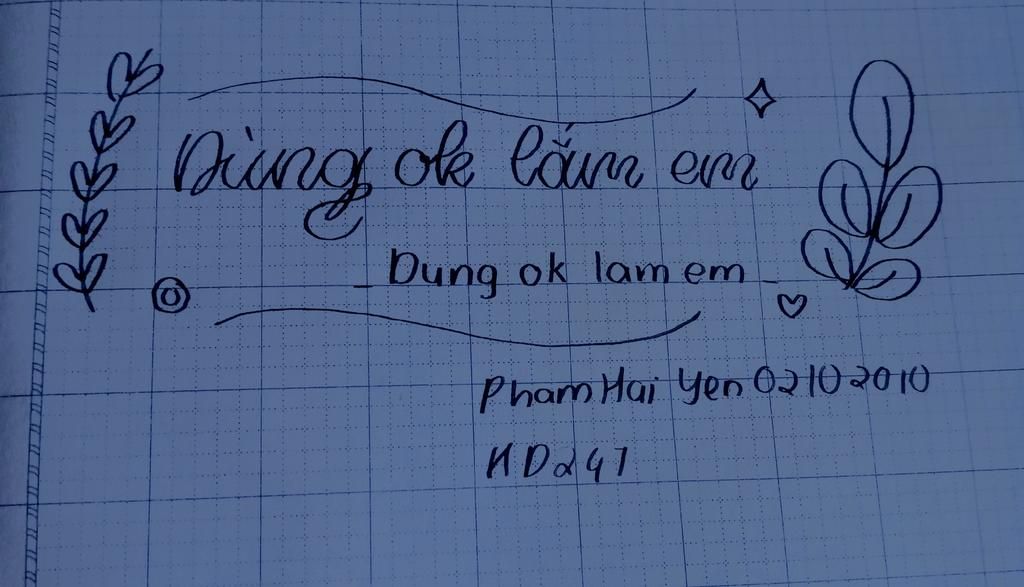 Dùng ok lắm em
_ Dung ok lam em _
Pham Hai Yen 02102010
HD247